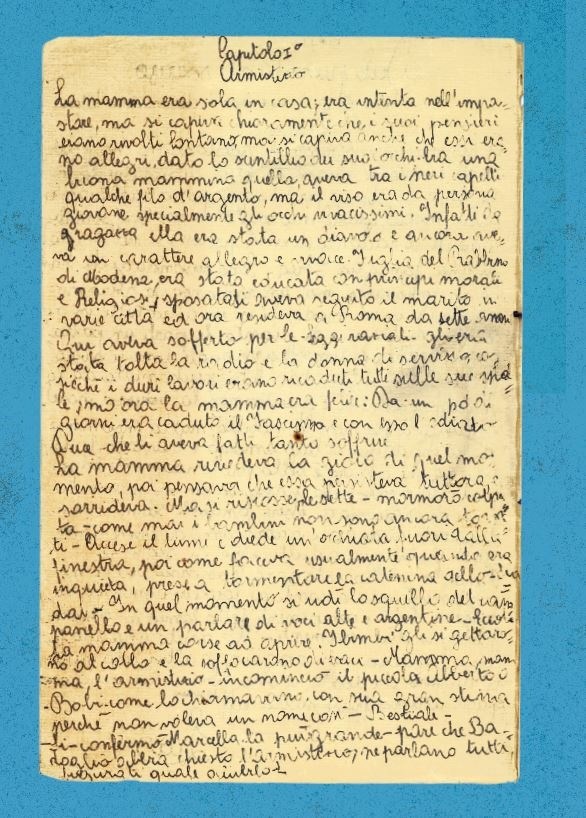 Capitolo I°
Armistizio
La mamma era sola in casa; era intenta nell'impa-
stare, ma si capiva chiaramente che i suoi pensieri
erano rivolti lontano, ma si capiva anche che essi era-
no allegri, dato lo scintillio dei suoi occhi. Era una
buona mammina quella, aveva tra i neri capelli
qualche filo d'argento, ma il viso era da persona
giovane specialmente gli occhi vivacissimi. Infatti da
ragazza ella era stata un diavolo e ancora ave-
va un carattere allegro e vivace. Figlia del Rabbino
di Modena, era stata educata con principi morali
e Religiosi, sposatasi aveva seguito il marito in
varie città ed ora risiedeva a Roma da sette anni
Qui aveva sofferto per le leggi razziali. gli era
stata tolta la radio e la donna di servizio,
sicchè i duri lavori erano ricaduti tutti sulle sue spal-
le, ma ora la mamma era felice: Da un po' di
giorni era caduto il Fascismo e con esso l'odiato
Duce che li aveva fatti tanto soffrire
La mamma rivedeva la gioia di quel mo-
mento, poi pensava che essa persisteva tuttora e
sorrideva. Ma si riscosse, le sette - mormorò colpi-
ta - come mai i bambini non sono ancora torna-
ti - Accese il lume e diede un'occhiata fuori dalla
finestra, poi come faceva usualmente quando era
inquieta, prese a tormentare la catenina dello Sciad-
dai. - In quel momento si udì lo squillo del cam-
panello e un parlare di voci alte e argentine - Eccoli
La mamma corse ad aprire. I bimbi gli si gettaro-
no al collo e la soffocarono di baci - Mamma, mam-
ma l'armistizio - incominciò il piccolo Uberto o
Bobi come lo chiamavano con sua gran stizza
perchè non voleva un nome così - Bestiale -
Si - confermò Marcella la più grande - pare che Ba-
doglio abbia chiesto l'armistizio, ne parlano tutti,
figurati quale